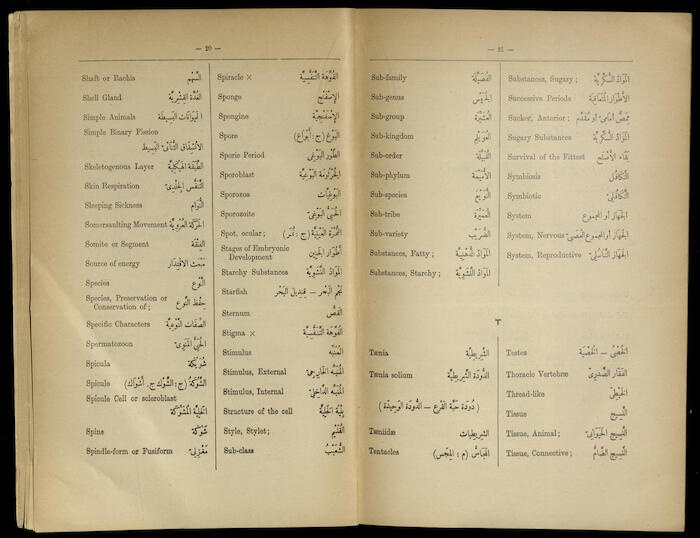 — 20 —
Shaft or Rachis السَّهْم
Shell Gland الغُدَّة القِشْرِيَّة
Simple Animals الحَيَوَانَات البَسِيطَة
Simple Binary Fission
الانْشِقَاق الثُّنَائِيّ البَسِيط
Skeletogenous Layer الطَّبَقَة الهَيْكَلِيَّة
Skin Respiration التَّنَفُّس الجِلْدِيّ
Sleeping Sickness النُّوَام
Somersaulting Movement الحَرَكَة
Somite or Segment الفِلْقَة
Source of energy مَبْعَث الاقْتِدَار
Species النَّوْع
Species, Preservation or
Conservation of ; حِفْظ النَّوْع
Specific Characters الصِّفَات النَّوْعِيَّة
Spermatozoon الحُيَيّ المَنَوِيّ
Spicula شُوَيْكَة
Spicule الشَّوْكَة (ج : الشَّوْك ج. أَشْوَاك)
Spicule Cell or scleroblast
الخَلِيَّة المُشَوِّكَة
Spine شَوْكَة
Spindle-form or Fusiform مِغْزَلِيّ
Spiracle × الفُوَّهَة التَّنَفُّسِيَّة
Sponge الإِسْفَنْج
Spongine الإِسْفَنْجِيَّة
Spore البَوْغ (ج : أَبْوَاغ)
Sporic Period الطَّوْر البَوْغِي
Sporoblast الجُرْثُومَة البَوْغِيَّة
Sporozoa البَوْغِيَّات
Sporozoite الحُيَيّ البَوْغِيّ
Spot, ocular ;
Stages of Embryonic
Development أَطْوَار الجَنِين
Starchy Substances المَوَادّ النَّشَوِيَّة
Starfish نَجْم البَحْر — قِنْدِيل البَحْر
Sternum القَصّ
Stigma × الفُوَّهَة التَّنَفُّسِيَّة
Stimulus المُنَبِّه
Stimulus, External المُنَبِّه الخَارِجِيّ
Stimulus, Internal المُنَبِّه الدَّاخِلِيّ
Structure of the cell بِنْيَة الخَلِيَّة
Style, Stylet ; القُلَيْم
Sub-class الشُّعَيْب
— 21 —
Sub-family الفُصَيْلَة
Sub-genus
Sub-group العُشَيْرَة
Sub-kingdom العُوَيْلِم
Sub-order القُبَيْلَة
Sub-phylum الأُمَيْمَة
Sub-species النُّوَيْع
Sub-tribe العُمَيْرَة
Sub-variety الضُّرَيْب
Substances, Fatty ; المَوَادّ الدُّهْنِيَّة
Substances, Starchy ; المَوَادّ النَّشَوِيَّة
Substances, Sugary ; المَوَادّ السُّكَّرِيَّة
Successive Periods الأَطْوَار المُتَعَاقِبَة
Sucker, Anterior ; مِمَصّ أَمَامِيّ أو مُقَدَّم
Sugary Substances المَوَادّ السُّكَّرِيَّة
Survival of the Fittest بَقَاء الأَصْلَح
Symbiosis التَّكَافُل
Symbiotic التَّكَافُلِيّ
System الجِهَاز أو المَجْمُوع
System, Nervous الجِهَاز أو المَجْمُوع العَصَبِيّ
System, Reproductive الجِهَاز التَّنَاسُلِيّ
T
Tænia الشَّرِيطِيَّة
Tænia solium الدُّودَة الشَّرِيطِيَّة
(دُودَة حَبَّة القَرْع — الدُّودَة الوَحِيدَة)
Tæniidæ الشَّرِيطِيَّات
Tentacles
Testes الخُصَى — الخُصْيَة
Thoracic Vertebræ الفَقَار الصَّدْرِيّ
Thread-like الخَيْطِيّ
Tissue النَّسِيج
Tissue, Animal ; النَّسِيج الحَيَوَانِيّ
Tissue, Connective ; النَّسِيج الضَّامّ